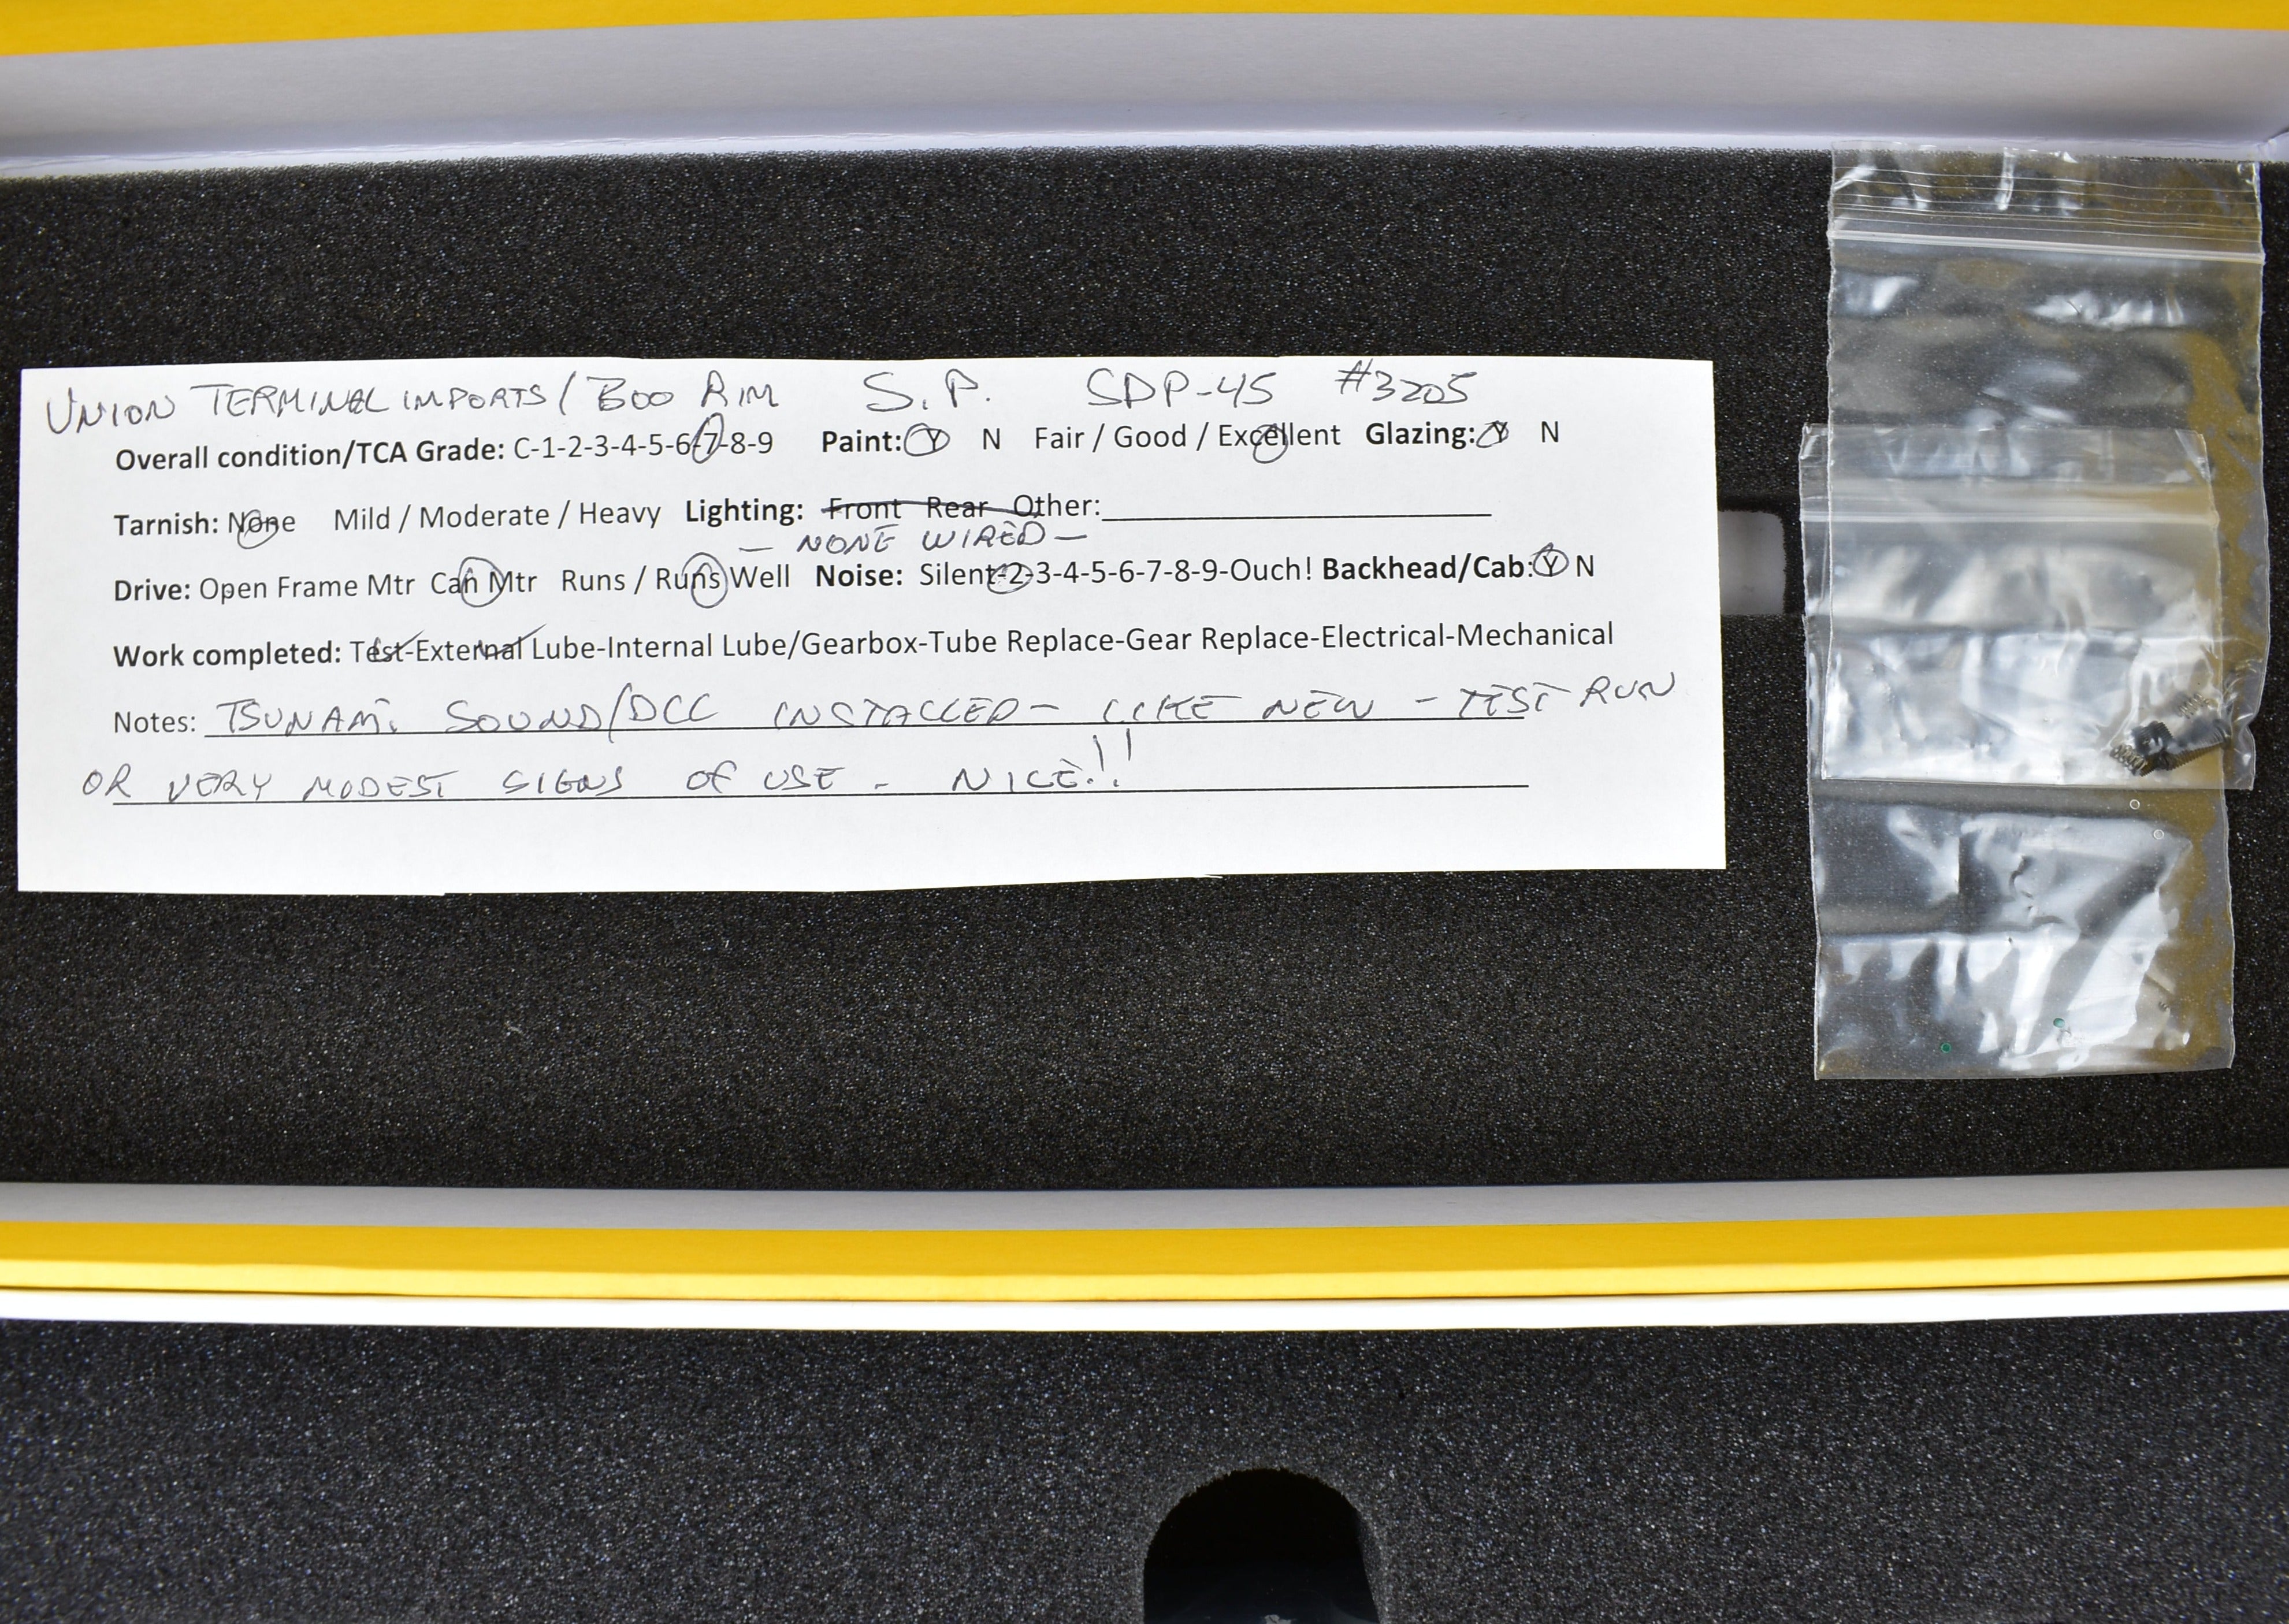 UNION TERMINAL IMPORTS / BOO RIM S.P. SDP-45 #3205
Overall condition/TCA Grade: C-1-2-3-4-5-6-7-8-9 Paint: Y N Fair / Good / Excellent Glazing: Y N
Tarnish: None Mild / Moderate / Heavy Lighting: Front Rear Other:
— NONE WIRED —
Drive: Open Frame Mtr Can Mtr Runs / Runs Well Noise: Silent-2-3-4-5-6-7-8-9-Ouch! Backhead/Cab: Y N
Work completed: Test-External Lube-Internal Lube/Gearbox-Tube Replace-Gear Replace-Electrical-Mechanical
Notes: TSUNAMI SOUND/DCC INSTALLED - LIKE NEW - TEST RUN
OR VERY MODEST SIGNS OF USE - NICE!!